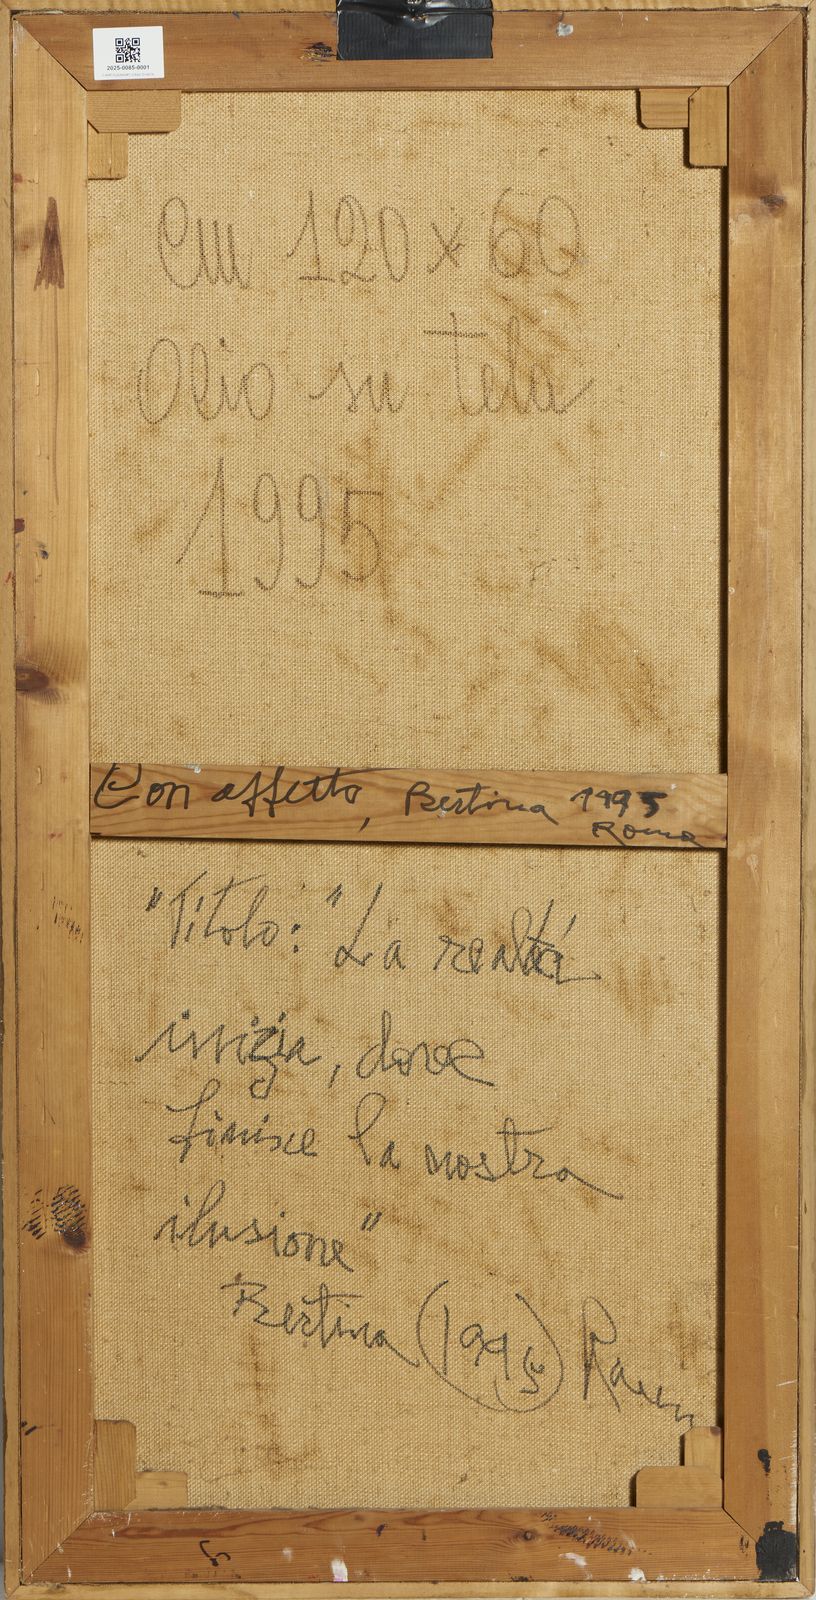 2025-0085-0001
cm 120 x 60
Olio su tela
1995
Con affetto, Bertina 1995
Roma
"Titolo: "La realtá
inizia, dove
finisce la nostra
ilusione"
Bertina (1995)